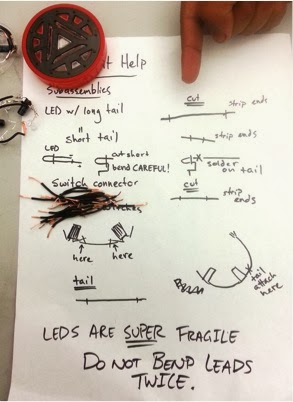 Help
Subassemblies
cut
LED w/ long tail
strip ends
" short tail
strip ends
LED
cut short
bend CAREFUL!
solder on tail
Switch connector
cut
strip ends
here
here
tail
tail attach here
LEDS ARE SUPER FRAGILE
DO NOT BEND LEADS
TWICE.